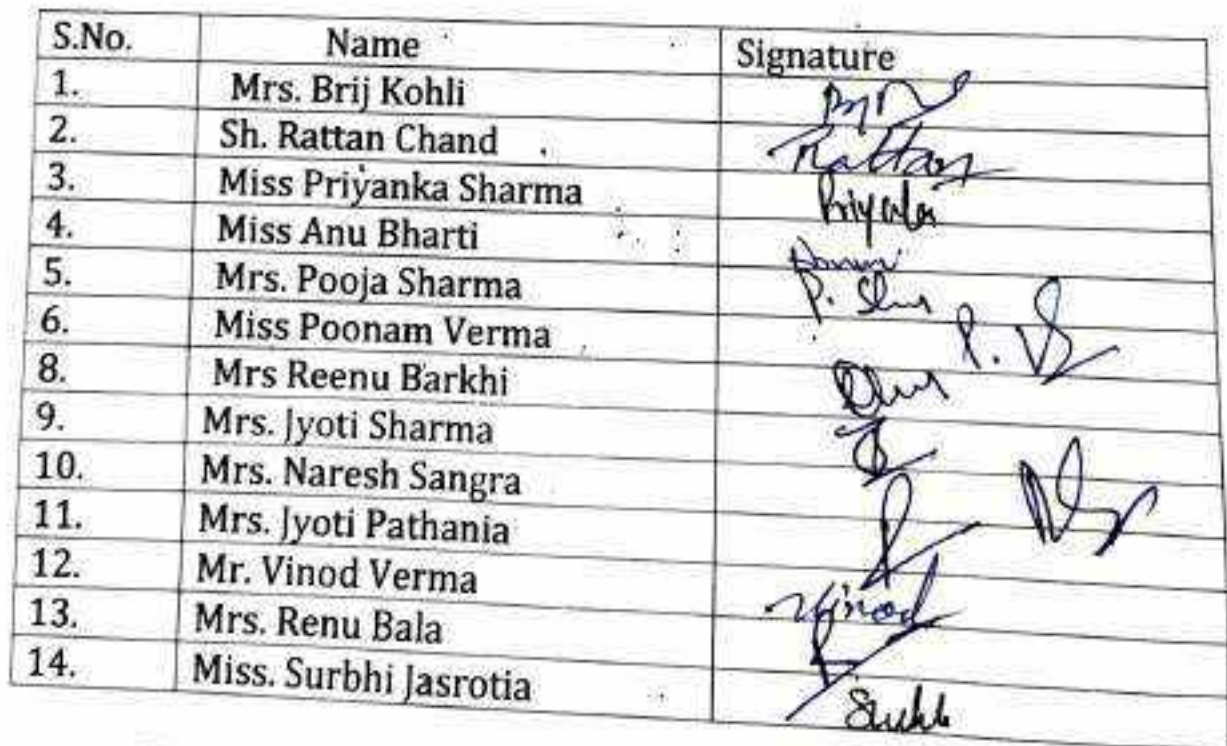 S.No. Name Signature
1. Mrs. Brij Kohli
2. Sh. Rattan Chand Rattan
3. Miss Priyanka Sharma
4. Miss Anu Bharti
5. Mrs. Pooja Sharma P.
6. Miss Poonam Verma P. V
8. Mrs Reenu Barkhi
9. Mrs. Jyoti Sharma
10. Mrs. Naresh Sangra
11. Mrs. Jyoti Pathania
12. Mr. Vinod Verma Vinod
13. Mrs. Renu Bala
14. Miss. Surbhi Jasrotia